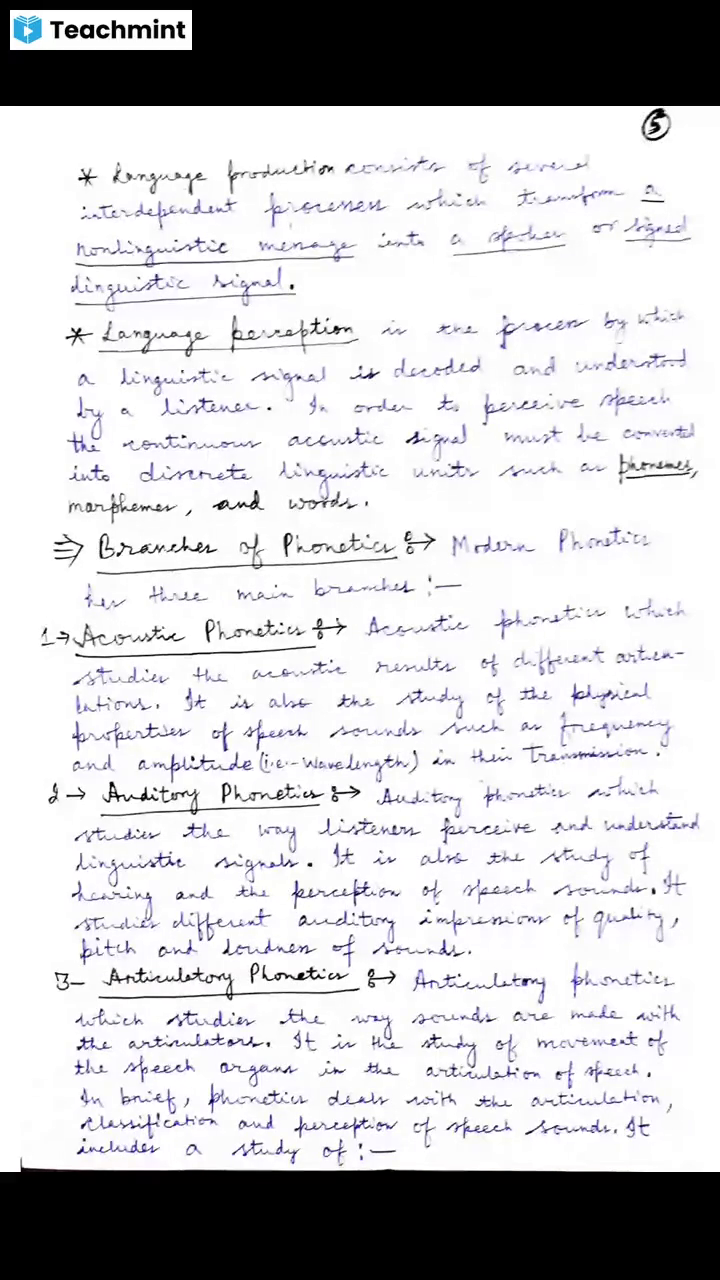 Teachmint
5
* Language production consists of several
interdependent processes which transform a
nonlinguistic message into a spoken or signed
linguistic signal.
* Language perception is the process by which
a linguistic signal is decoded and understood
by a listener. In order to perceive speech
the continuous acoustic signal must be converted
into discrete linguistic units such as phonemes,
morphemes, and words.
⇒ Branches of Phonetics :→ Modern Phonetics
has three main branches :—
1→ Acoustic Phonetics :→ Acoustic phonetics which
studies the acoustic results of different articu-
lations. It is also the study of the physical
properties of speech sounds such as frequency
and amplitude (i.e.- Wavelength) in their transmission.
2→ Auditory Phonetics :→ Auditory phonetics which
studies the way listeners perceive and understand
linguistic signals. It is also the study of
hearing and the perception of speech sounds. It
studies different auditory impressions of quality,
pitch and loudness of sounds.
3- Articulatory Phonetics :→ Articulatory phonetics
which studies the way sounds are made with
the articulators. It is the study of movement of
the speech organs in the articulation of speech.
In brief, phonetics deals with the articulation,
classification and perception of speech sounds. It
includes a study of :—